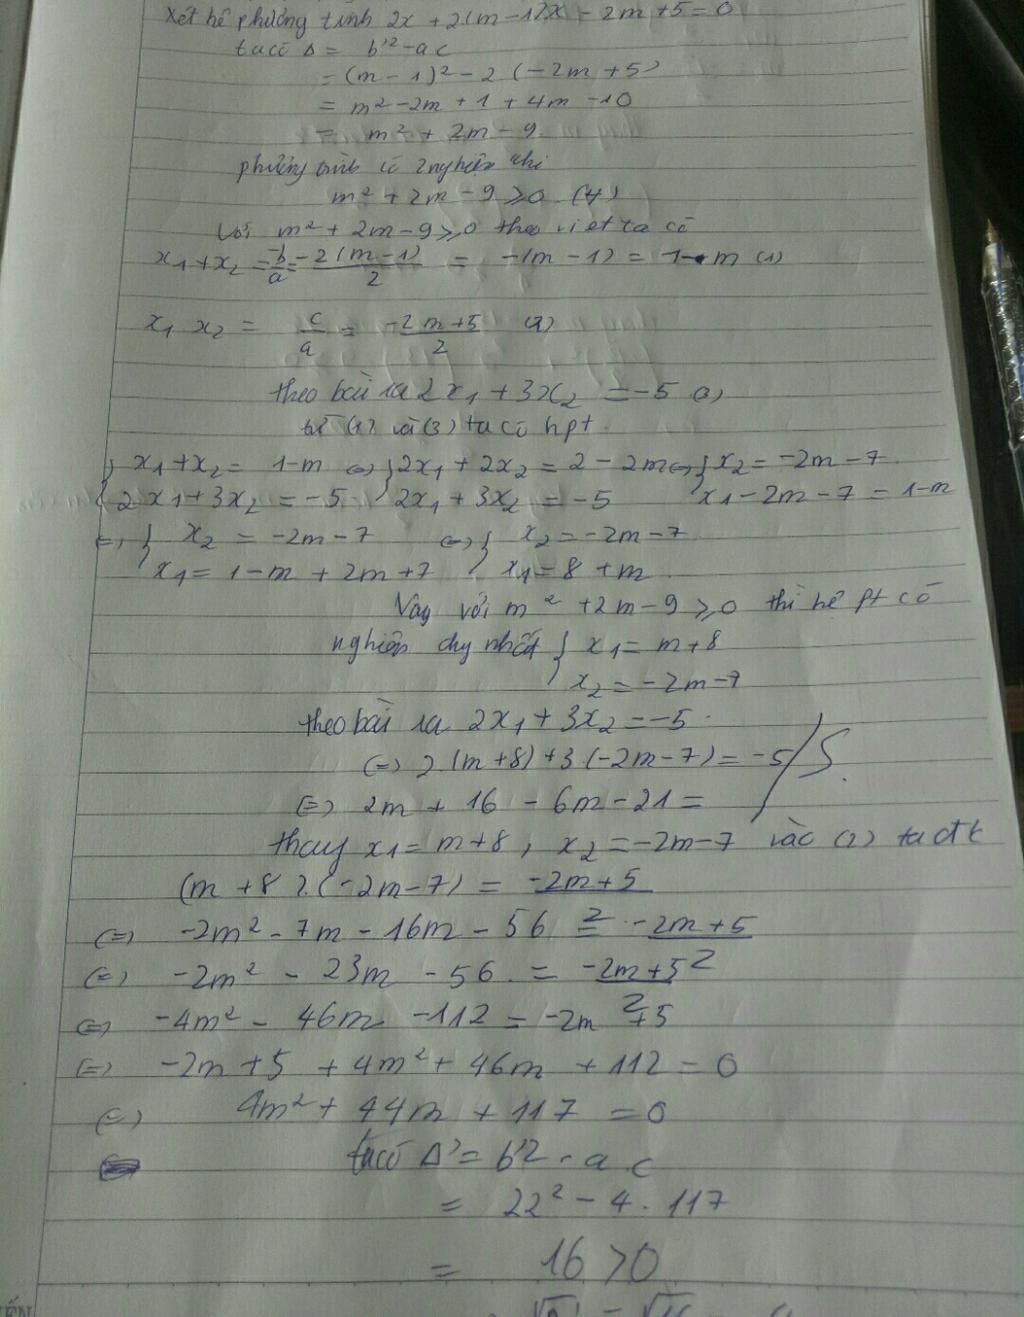 Xét hê phường tình 2x + 2(m-1)x - 2m + 5 = 0
ta có Δ = b'² - ac
= (m - 1)² - 2 (-2m + 5)
= m² - 2m + 1 + 4m - 10
= m² + 2m - 9
phường trình có 2 nghiệm khi
m² + 2m - 9 ≥ 0 (4)
Với m² + 2m - 9 ≥ 0 theo viet ta có
x₁ + x₂ = -b/a = -2(m-1)/2 = -(m - 1) = 1 - m (1)
x₁ x₂ = c/a = -2m+5/2 (2)
theo bài ra 2x₁ + 3x₂ = -5 (3)
từ (1) và (3) ta có hpt
{ x₁ + x₂ = 1-m <=> { 2x₁ + 2x₂ = 2 - 2m <=> { x₂ = -2m - 7
2x₁ + 3x₂ = -5 2x₁ + 3x₂ = -5 x₁ - 2m - 7 = 1-m
<=> { x₂ = -2m - 7 <=> { x₂ = -2m - 7
x₁ = 1 - m + 2m + 7 x₁ = 8 + m
Vậy với m² + 2m - 9 ≥ 0 thì hê pt có
nghiệm duy nhất { x₁ = m + 8
x₂ = -2m - 7
theo bài ra 2x₁ + 3x₂ = -5
<=> 2.(m+8) + 3.(-2m-7) = -5 / S.
<=> 2m + 16 - 6m - 21 =
thay x₁ = m + 8, x₂ = -2m - 7 vào (2) ta đk
(m + 8).(-2m - 7) = -2m + 5/2
<=> -2m² - 7m - 16m - 56 = -2m + 5/2
<=> -2m² - 23m - 56 = -2m + 5/2
<=> -4m² - 46m - 112 = -2m + 5
<=> -2m + 5 + 4m² + 46m + 112 = 0
<=> 4m² + 44m + 117 = 0
ta có Δ' = b'² - a.c
= 22² - 4 . 117
= 16 > 0